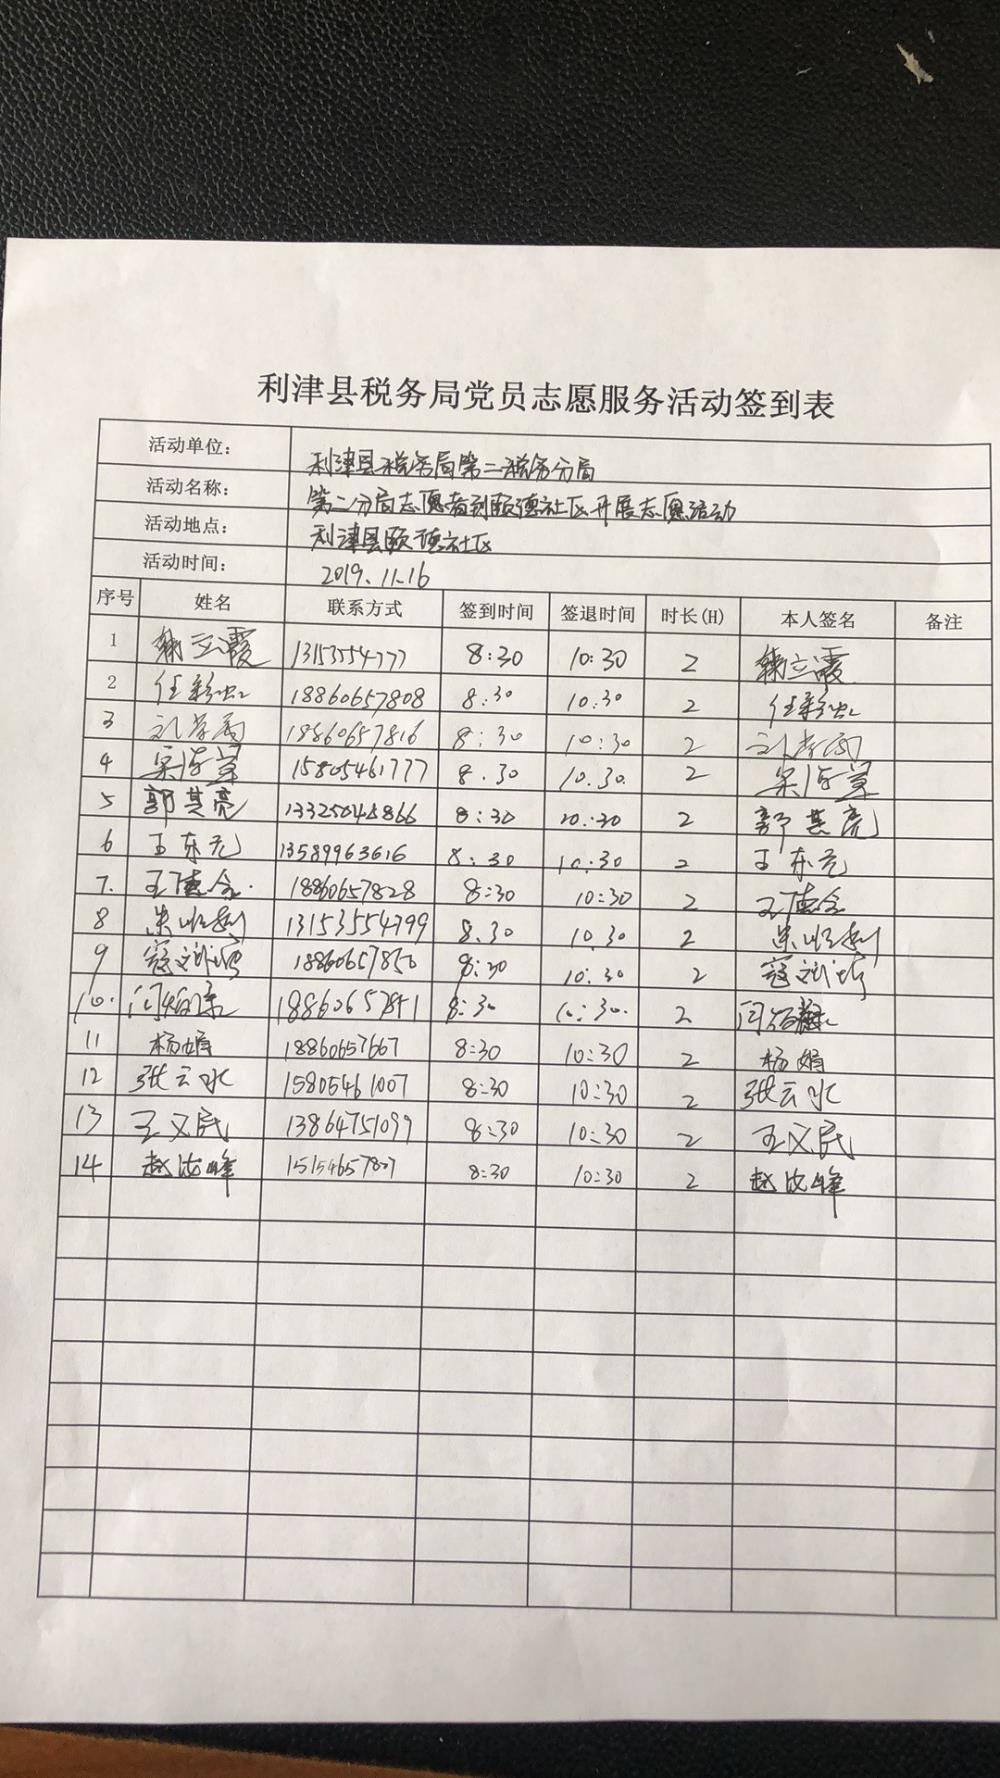 利津县税务局党员志愿服务活动签到表
活动单位： 利津县税务局第二税务分局
活动名称： 第二分局志愿者到颐德社区开展志愿活动
活动地点： 利津县颐德社区
活动时间： 2019.11.16
序号 姓名 联系方式 签到时间 签退时间 时长(H) 本人签名 备注
1 韩立霞 13153554777 8:30 10:30 2 韩立霞
2 任彩虹 18860657808 8:30 10:30 2 任彩虹
3 18860657816 8:30 10:30 2
4 15805461777 8.30 10.30. 2
5 郭其亮 13325045866 8:30 10:30 2 郭其亮
6 王东元 13589963616 8:30 10:30 2 王东元
7. 王德全. 18860657828 8:30 10:30 2 王德全
8 朱顺利 13153554799 8.30 10.30 2 朱顺利
9 寇 18860657850 8:30 10:30 2 寇
10. 闫 18860657841 8:30 10:30. 2 闫
11 杨娟 18860657667 8:30 10:30 2 杨娟
12 张云水 15805461007 8:30 10:30 2 张云水
13 王义民 13864751099 8:30 10:30 2 王义民
14 赵 峰 15154657807 8:30 10:30 2 赵 峰